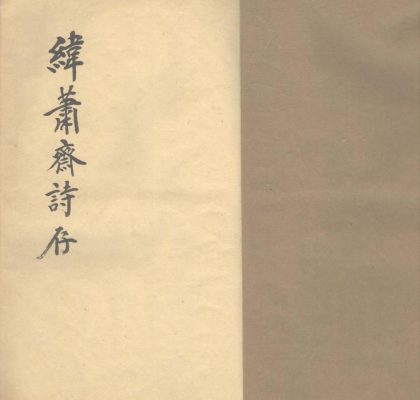 緯蕭齋詩存